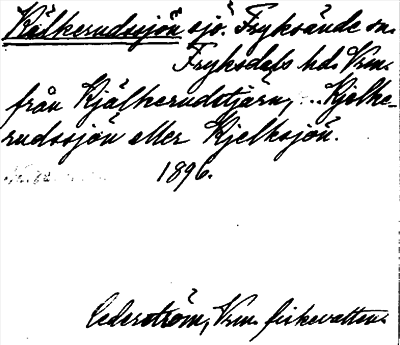 Kälkerudssjön sjö. Fryksände sn.
Fryksdals hd. Vrm.
från Kjälkerudstjärn, ... Kjelke-
rudssjön eller Kjelksjön.
1896.
Cederström, Vrm. fiskevatten.